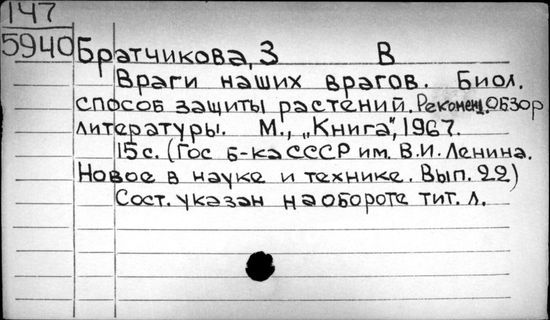 147
5940 Братчикова, З В
Враги наших врагов. Биол.
способ защиты растений. Рекоменд. обзор
литературы. М., „Книга", 1967.
15 с. (Гос б-ка СССР им. В.И. Ленина.
Новое в науке и технике. Вып. 22)
Сост. указан на обороте тит. л.